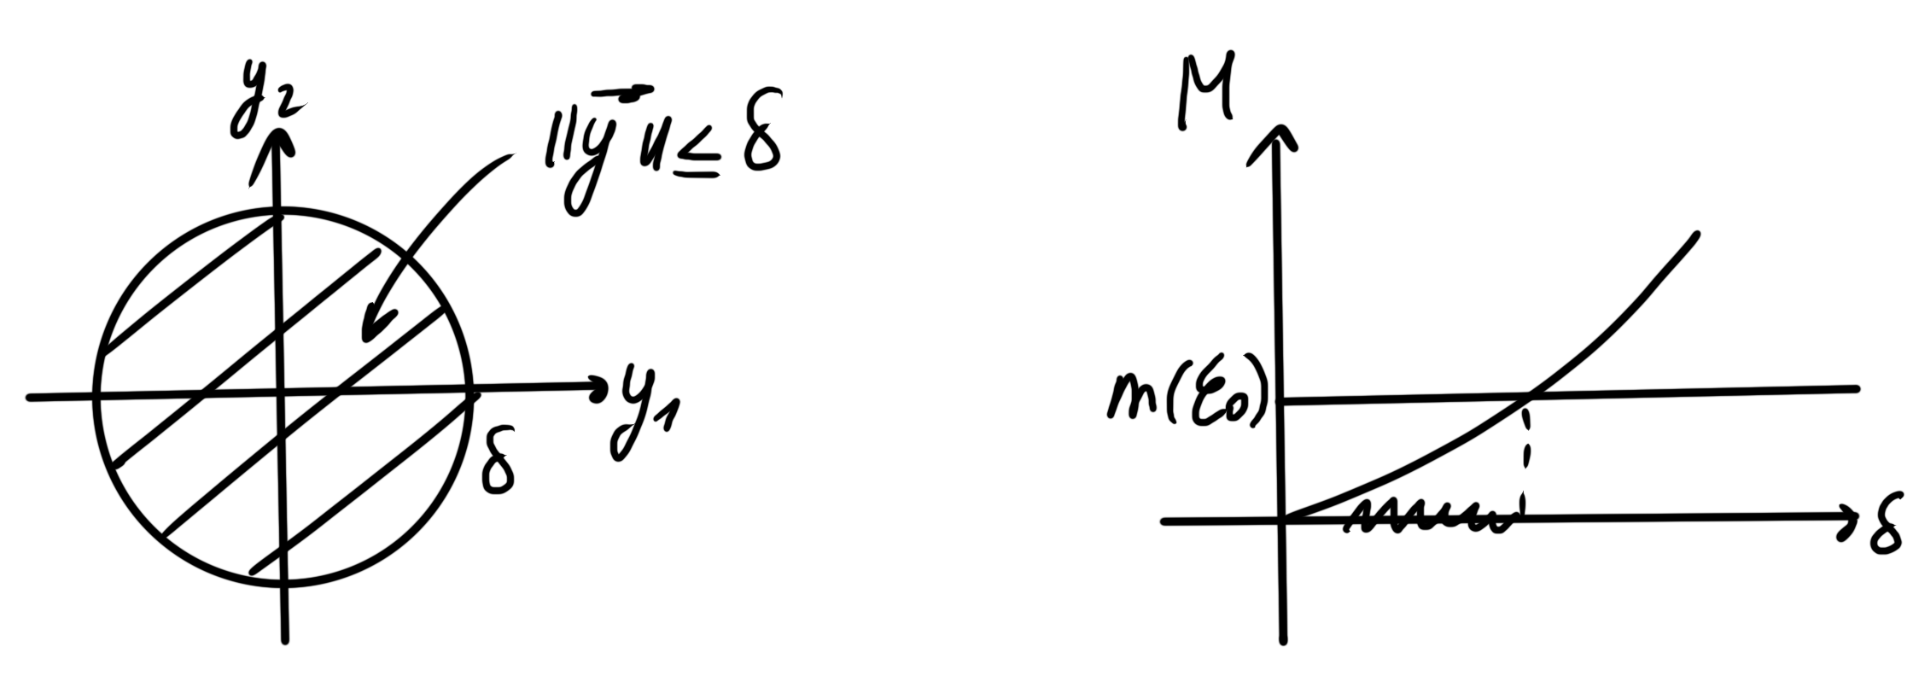 y₂
‖y⃗‖ ≤ δ
y₁
δ
M
m(ε₀)
δ